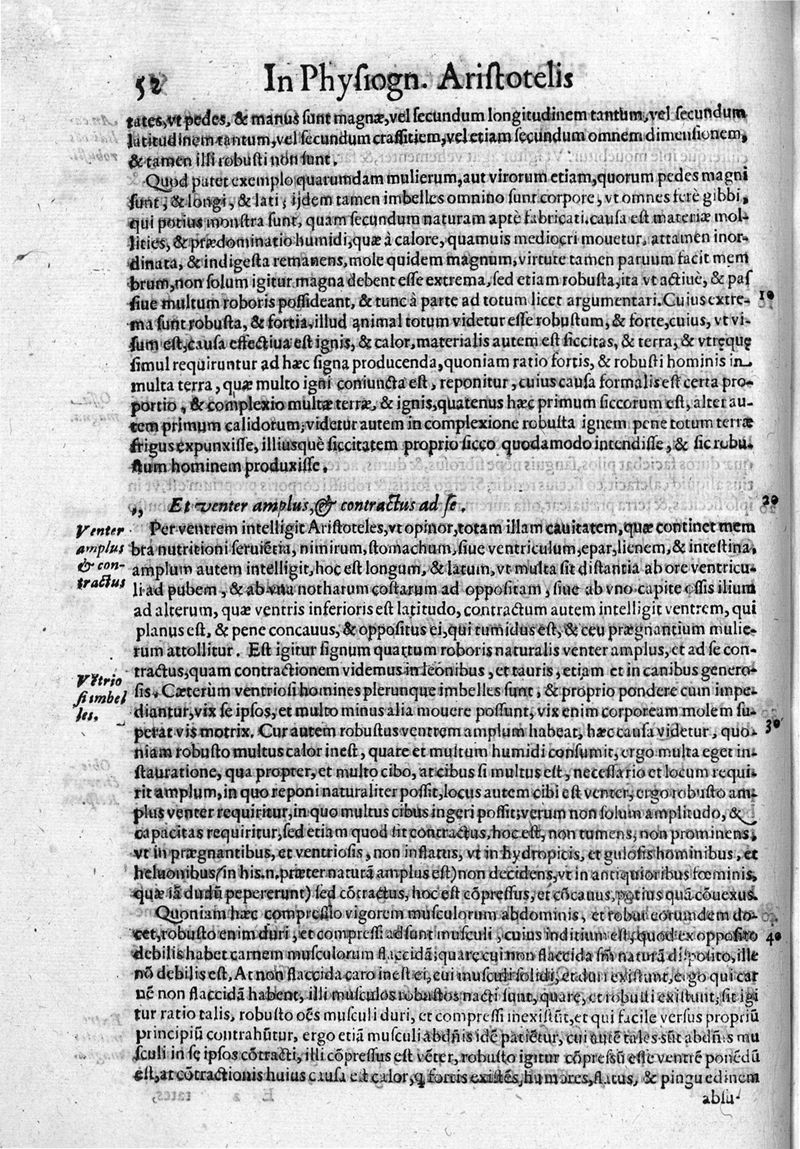 52 In Physiogn. Aristotelis
tates, vt pedes, & manus sunt magnæ, vel secundum longitudinem tantum, vel secundum
latitudinem tantum, vel secundum crassitiem, vel etiam secundum omnem dimensionem,
& tamen illi robusti non sunt.
Quod patet exemplo quarumdam mulierum, aut virorum etiam, quorum pedes magni
sunt, & longi, & lati, ijdem tamen imbelles omnino sunt corpore, vt omnes ferè gibbi,
qui potius monstra sunt, quam secundum naturam aptè fabricati. causa est materiæ mol-
lities, & prædominatio humidi, quæ à calore, quamuis mediocri mouetur, attamen inor-
dinata, & indigesta remanens, mole quidem magnum, virtute tamen paruum facit mem
brum, non solum igitur magna debent esse extrema, sed etiam robusta, ita vt actiuè, & pas
siue multum roboris possideant, & tunc à parte ad totum licet argumentari. Cuius extre- 10
ma sunt robusta, & fortia, illud animal totum videtur esse robustum, & forte, cuius, vt vi-
sum est, causa effectiua est ignis, & calor, materialis autem est siccitas, & terra, & vtreque
simul requiruntur ad hæc signa producenda, quoniam ratio fortis, & robusti hominis in
multa terra, quæ multo igni coniuncta est, reponitur, cuius causa formalis est certa pro-
portio, & complexio multæ terræ, & ignis, quatenus hæc primum siccorum est, alter au-
tem primum calidorum; videtur autem in complexione robusta ignem pene totum terræ
frigus expunxisse, illiusquè siccitatem proprio sicco quodamodo intendisse, & sic robu-
stum hominem produxisse.
,, Et venter amplus, & contractus ad se. 20
Venter
amplus
& con-
tractus
Per ventrem intelligit Aristoteles, vt opinor, totam illam cauitatem, quæ continet mem
bra nutritioni seruiẽtia, nimirum, stomachum, siue ventriculum, epar, lienem, & intestina,
amplum autem intelligit, hoc est longum, & latum, vt multa sit distantia ab ore ventricu-
li ad pubem, & ab vna notharum costarum ad oppositam, siue ab vno capite ossis ilium
ad alterum, quæ ventris inferioris est latitudo, contractum autem intelligit ventrem, qui
planus est, & pene concauus, & oppositus ei, qui tumidus est, & ceu prægnantium mulie-
rum attollitur. Est igitur signum quartum roboris naturalis venter amplus, et ad se con-
tractus, quam contractionem videmus in leonibus, et tauris, etiam et in canibus genero-
Vẽtrio
si imbel
les.
sis. Cæterum ventriosi homines plerunque imbelles sunt, & proprio pondere cum impe-
diantur, vix se ipsos, et multo minus alia mouere possunt, vix enim corpoream molem su-
perat vis motrix. Cur autem robustus ventrem amplum habeat, hæc causa videtur, quo- 30
niam robusto multus calor inest, quare et multum humidi consumit, ergo multa eget in-
stauratione, qua propter, et multo cibo, at cibus si multus est, necessario et locum requi-
rit amplum, in quo reponi naturaliter possit, locus autem cibi est venter, ergo robusto am-
plus venter requiritur, in quo multus cibus ingeri possit; verum non solum amplitudo, &
capacitas requiritur, sed etiam quod sit contractus, hoc est, non tumens, non prominens,
vt in prægnantibus, et ventriosis, non inflatus, vt in hydropicis, et gulosis hominibus, et
heluonibus (in his. n. præter naturã amplus est) non decidens, vt in antiquioribus fœminis,
quæ iã dudũ pepererunt) sed cõtractus, hoc est cõpressus, et cõcauus, potius quã cõuexus.
Quoniam hæc compressio vigorem musculorum abdominis, et robur eorumdem do-
cet, robusto enim duri, et compressi adsunt musculi, cuius inditium est, quod ex opposito 40
debilis habet carnem musculorum flaccidã; quare cui non flaccida sm̃ naturã disposito, ille
nõ debilis est. At non flaccida caro inest ei, cui musculi solidi, et duri existant, ergo qui car
nẽ non flaccidã habent, illi musculos robustos nacti sunt, quare, et robusti existunt; sit igi
tur ratio talis, robusto oẽs musculi duri, et compressi inexistũt, et qui facile versus propriũ
principiũ contrahũtur, ergo etiã musculi abdñis idẽ patiẽtur, cui autẽ tales sũt abdñis mu
sculi in se ipsos cõtracti, illi cõpressus est vẽter, robusto igitur cõpressũ esse ventrẽ ponẽdũ
est, at cõtractionis huius causa est calor, q fortis existẽs, humores, flatus, & pinguedinem
absu-